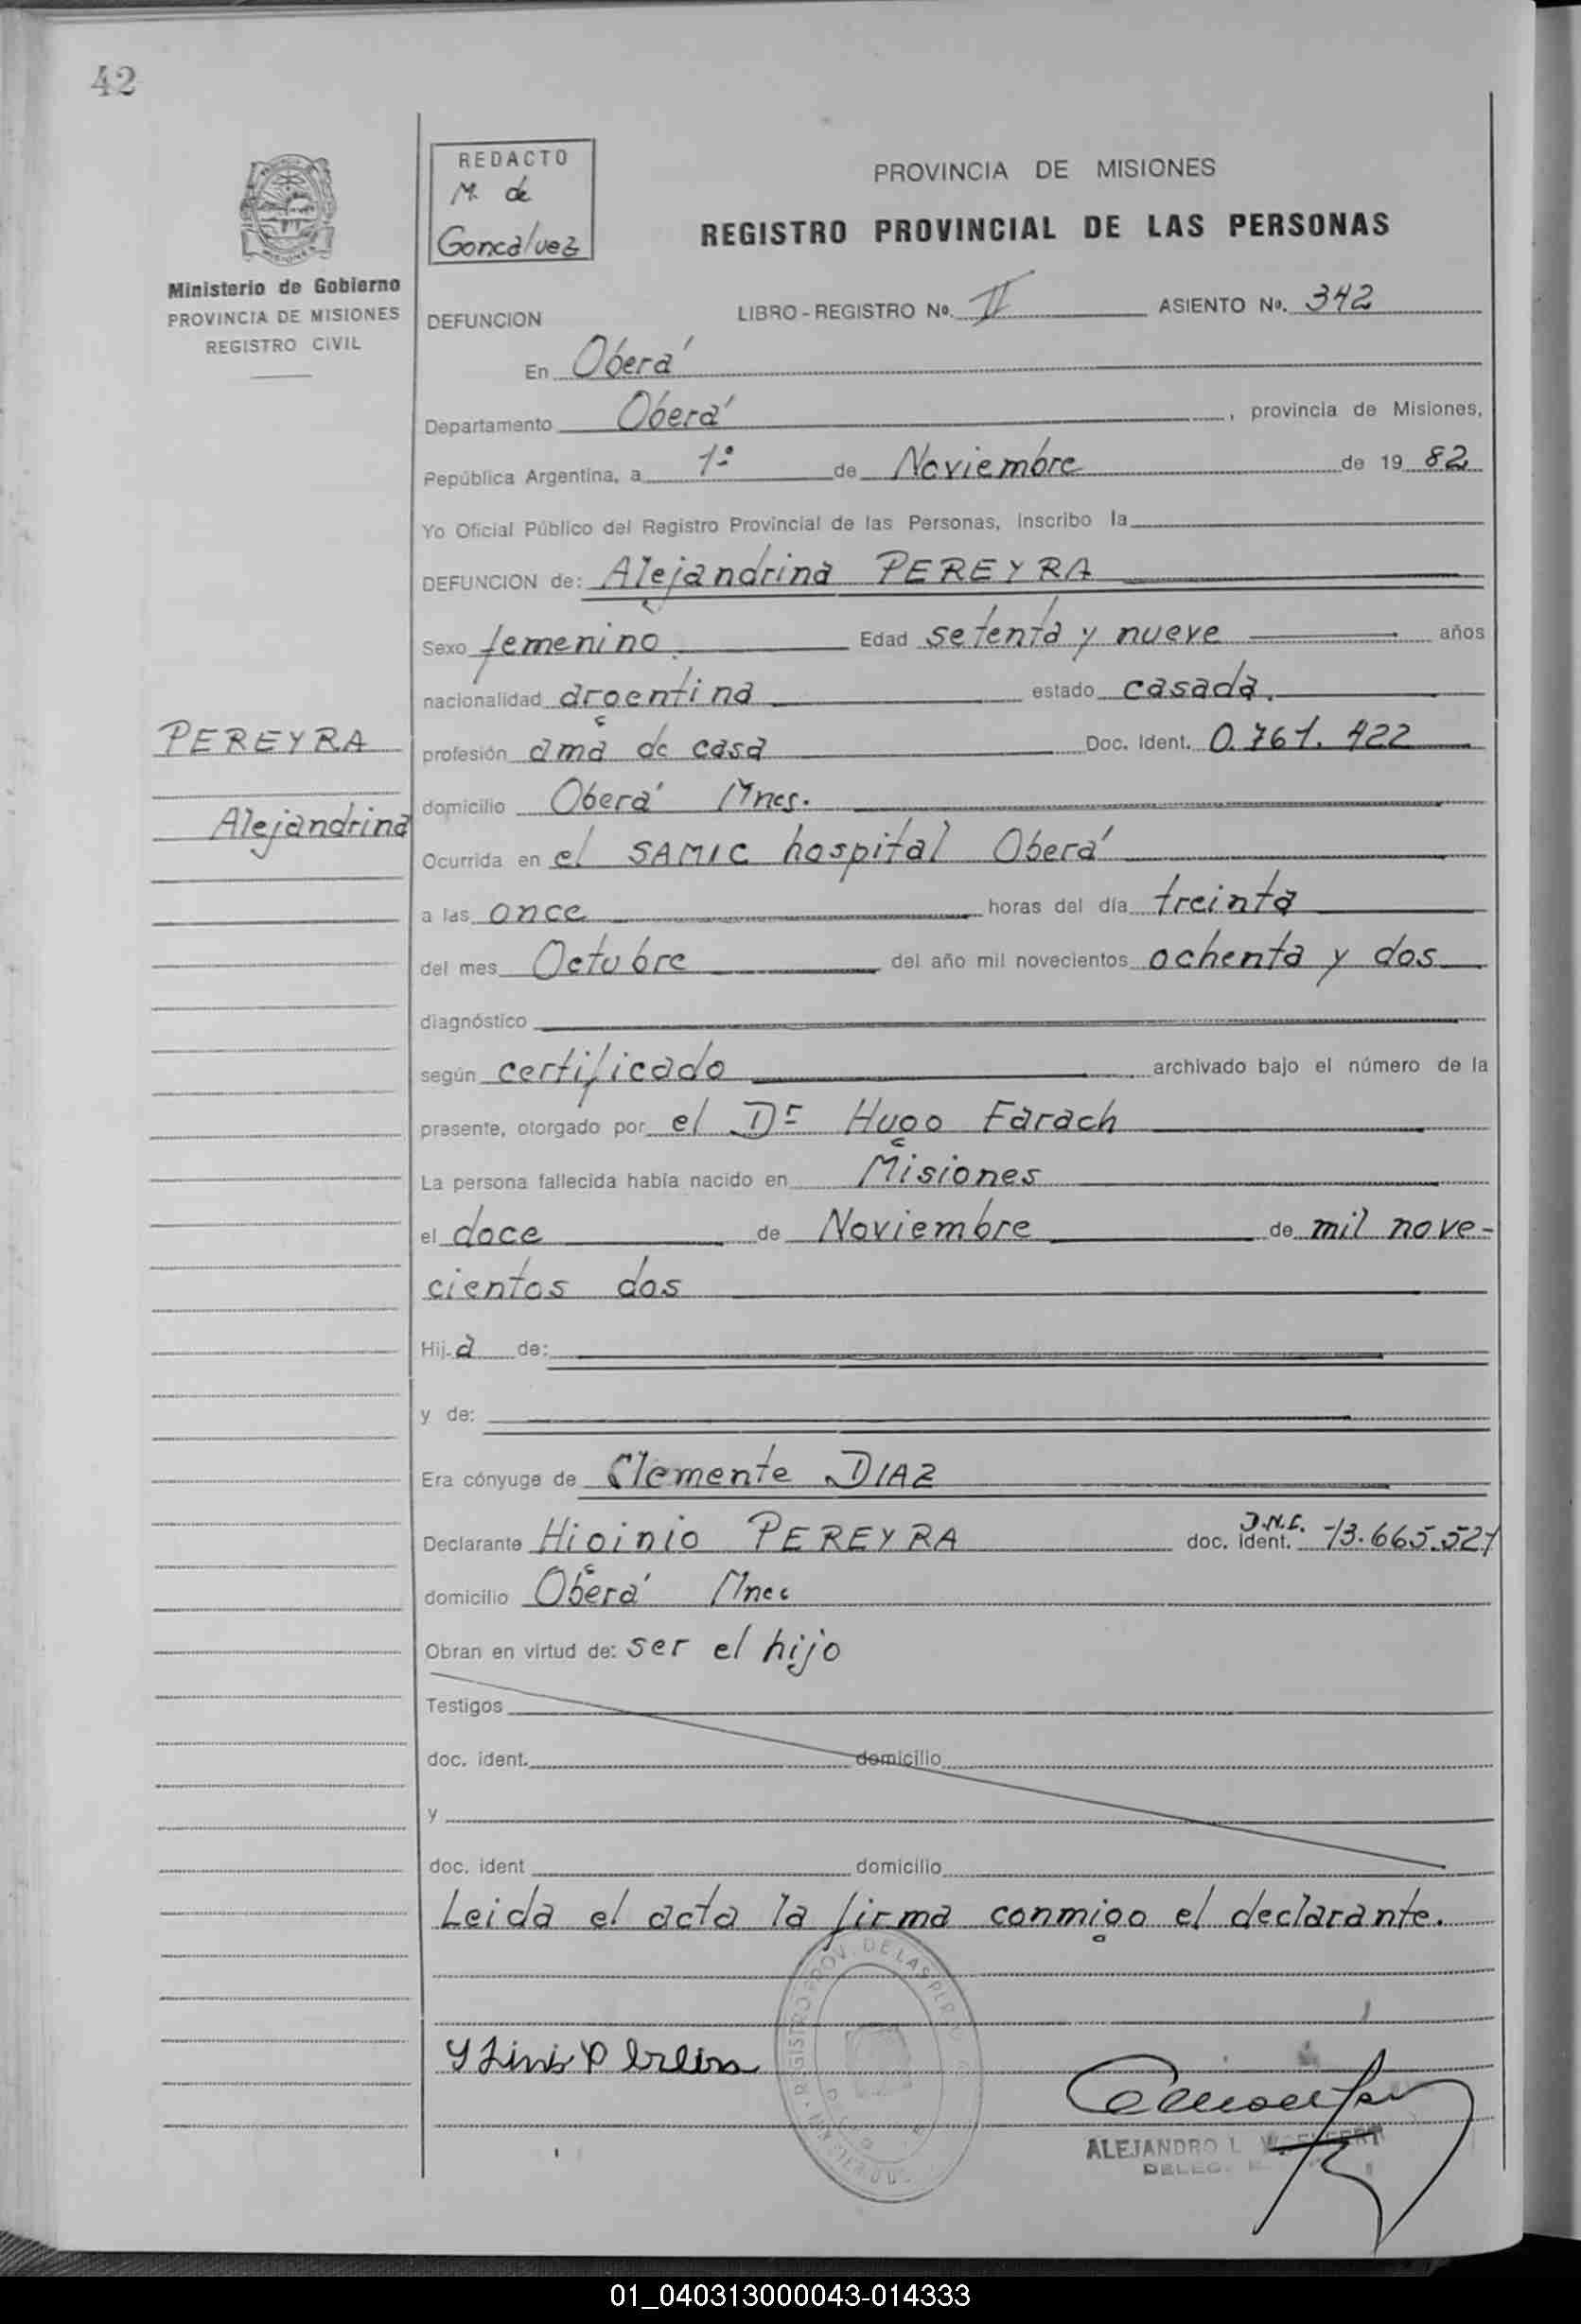 42
REDACTO
M. de
Goncalvez
Ministerio de Gobierno
PROVINCIA DE MISIONES
REGISTRO CIVIL
PROVINCIA DE MISIONES
REGISTRO PROVINCIAL DE LAS PERSONAS
DEFUNCION LIBRO - REGISTRO No. II ASIENTO No. 342
En Oberá
Departamento Oberá, provincia de Misiones,
República Argentina, a 1º de Noviembre de 19 82
Yo Oficial Público del Registro Provincial de las Personas, inscribo la
DEFUNCION de: Alejandrina PEREYRA
Sexo femenino. Edad setenta y nueve años
nacionalidad argentina estado casada.
PEREYRA
Alejandrina
profesión ama de casa Doc. Ident. 0.761.422
domicilio Oberá Mnes.
Ocurrida en el SAMIC hospital Oberá
a las once horas del día treinta
del mes Octubre del año mil novecientos ochenta y dos
diagnóstico
según certificado archivado bajo el número de la
presente, otorgado por el Dr Hugo Farach
La persona fallecida había nacido en Misiones
el doce de Noviembre de mil nove-
cientos dos
Hij a de:
y de:
Era cónyuge de Clemente DIAZ
Declarante Higinio PEREYRA doc. ident. D.N.I. 13.665.521
domicilio Oberá Mnes
Obran en virtud de: ser el hijo
Testigos
doc. ident. domicilio
y
doc. ident domicilio
Leida el acta la firma conmigo el declarante.
REGISTRO PROV. DE LAS PER
ALEJANDRO L
DELEG.
01_040313000043-014333